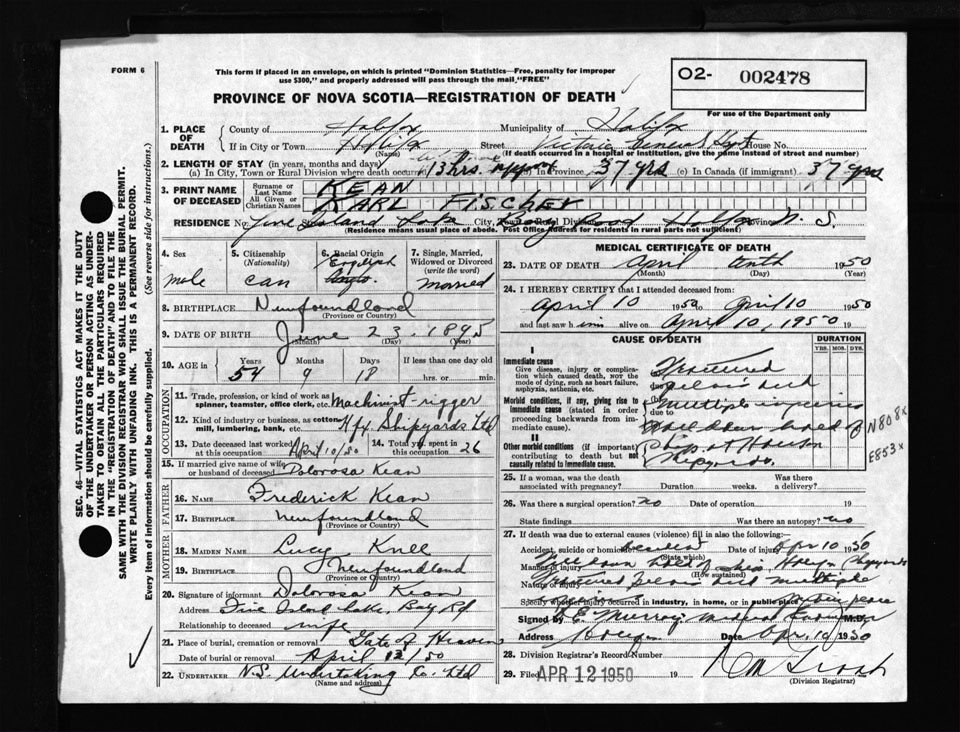 FORM 6
This form if placed in an envelope, on which is printed "Dominion Statistics—Free, penalty for improper
use $300," and properly addressed will pass through the mail "FREE"
02- 002478
For use of the Department only
PROVINCE OF NOVA SCOTIA—REGISTRATION OF DEATH
SEC. 46—VITAL STATISTICS ACT MAKES IT THE DUTY
OF THE UNDERTAKER OR PERSON ACTING AS UNDER-
TAKER TO OBTAIN ALL THE PARTICULARS REQUIRED
IN THE "REGISTRATION OF DEATH" AND TO FILE THE
SAME WITH THE DIVISION REGISTRAR WHO SHALL ISSUE THE BURIAL PERMIT.
WRITE PLAINLY WITH UNFADING INK. THIS IS A PERMANENT RECORD.
Every item of information should be carefully supplied. (See reverse side for instructions.)
1. PLACE OF DEATH County of Halifax Municipality of Halifax
If in City or Town Halifax (Name) Street Victoria General Hospt House No.
(If death occurred in a hospital or institution, give the name instead of street and number)
2. LENGTH OF STAY (in years, months and days)
(a) In City, Town or Rural Division where death occurred 13 hrs. (b) In Province 37 yrs (c) In Canada (if immigrant) 37 yrs
3. PRINT NAME OF DECEASED Surname or Last Name KEAN
All Given or Christian Names KARL FISCHER
RESIDENCE No. Five Island Lake City, Town or Rural Division Bay Road Halifax Province N. S.
(Residence means usual place of abode. Post Office address for residents in rural parts not sufficient)
4. Sex male
5. Citizenship (Nationality) can
6. Racial Origin English
7. Single, Married, Widowed or Divorced (write the word) married
8. BIRTHPLACE Newfoundland
(Province or Country)
9. DATE OF BIRTH June 23. 1895
(Month) (Day) (Year)
10. AGE in Years 54 Months 9 Days 18 If less than one day old hrs. or min.
OCCUPATION
11. Trade, profession, or kind of work as spinner, teamster, office clerk, etc. Machinist-rigger
12. Kind of industry or business, as cotton mill, lumbering, bank, etc. Hfx. Shipyards Ltd
13. Date deceased last worked at this occupation April 10/50
14. Total years spent in this occupation 26
15. If married give name of wife or husband of deceased Dolorosa Kean
FATHER
16. NAME Frederick Kean
17. BIRTHPLACE Newfoundland
(Province or Country)
MOTHER
18. MAIDEN NAME Lucy Knee
19. BIRTHPLACE Newfoundland
(Province or Country)
20. Signature of informant Dolorosa Kean
Address Five Island Lake, Bay Rd
Relationship to deceased wife
21. Place of burial, cremation or removal Gate of Heaven
Date of burial or removal April 12/50
22. UNDERTAKER N.S. Undertaking Co. Ltd
(Name and address)
MEDICAL CERTIFICATE OF DEATH
23. DATE OF DEATH April tenth 1950
(Month) (Day) (Year)
24. I HEREBY CERTIFY that I attended deceased from:
April 10 1950 to April 10 1950
and last saw him alive on April 10, 1950 19
CAUSE OF DEATH
DURATION
YRS. MOS. DYS.
I
Immediate cause
Give disease, injury or complication which caused death, NOT the mode of dying, such as heart failure, asphyxia, asthenia, etc.
Fractured
Pelvis and
Morbid conditions, if any, giving rise to immediate cause (stated in order proceeding backwards from immediate cause).
due to
multiple injuries
due to
II
Other morbid conditions (if important) contributing to death but not causally related to immediate cause.
N808x
E853x
25. If a woman, was the death associated with pregnancy? Duration weeks. Was there a delivery?
26. Was there a surgical operation? no Date of operation 19
State findings Was there an autopsy? no
27. If death was due to external causes (violence) fill in also the following:
Accident, suicide or homicide accident (State which) Date of injury Apr 10 1950
Manner of injury Fell down hold of ship Shipyards
(How sustained)
Nature of injury Fractured Pelvis and multiple
injuries
Specify whether injury occurred in industry, in home, or in public place
Signed by Murray M.D.
Address Date Apr. 10 1950
28. Division Registrar's Record Number
29. Filed APR 12 1950 19
(Division Registrar)